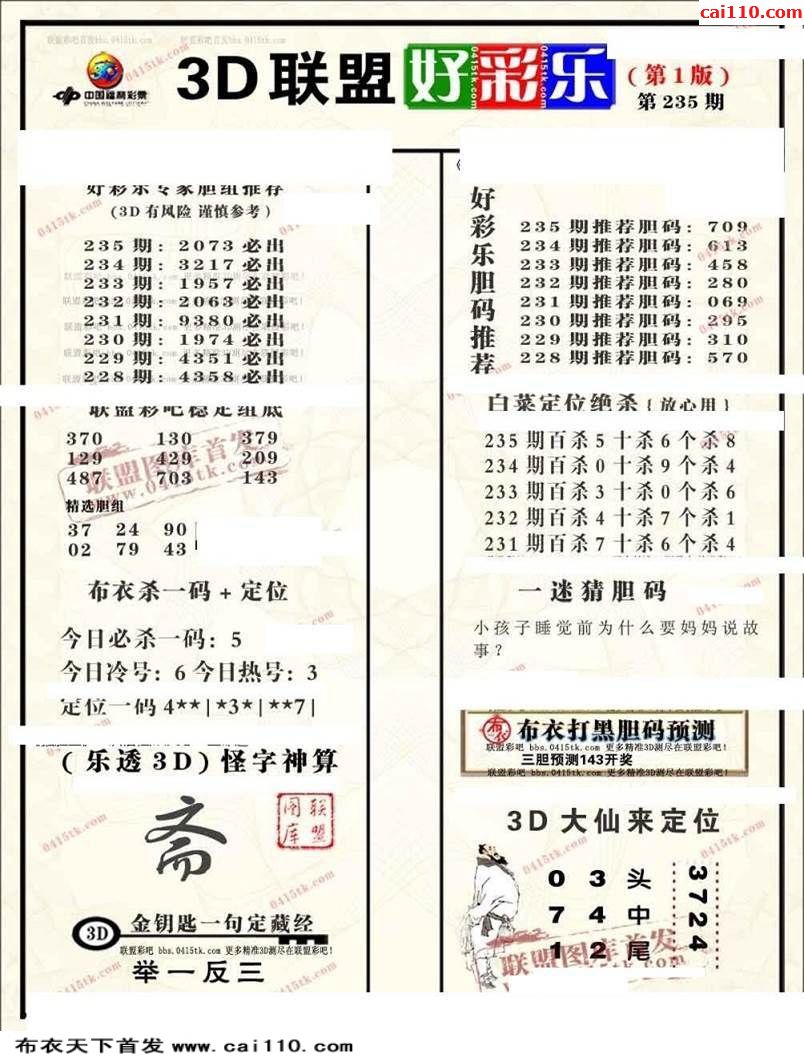 cai110.com
联盟彩吧首发bbs.0415tk.com 联盟彩吧首发bbs.0415tk.com
中国福利彩票
CHINA WELFARE LOTTERY
3D联盟好彩乐
(第1版)
第235期
好彩乐专家胆组推荐
(3D有风险 谨慎参考)
235期:2073必出
234期:3217必出
233期:1957必出
232期:2063必出
231期:9380必出
230期:1974必出
229期:4351必出
228期:4358必出
联盟彩吧稳定组底
370 130 379
129 429 209
487 703 143
联盟图库首发
www.0415tk.com
精选胆组
37 24 90
02 79 43
布衣杀一码+定位
今日必杀一码:5
今日冷号:6今日热号:3
定位一码4**|*3*|**7|
(乐透3D)怪字神算
斋
联盟图库
3D
金钥匙一句定藏经
联盟彩吧 bbs.0415tk.com 更多精准3D测尽在联盟彩吧!
举一反三
好彩乐胆码推荐
235期推荐胆码:709
234期推荐胆码:613
233期推荐胆码:458
232期推荐胆码:280
231期推荐胆码:069
230期推荐胆码:295
229期推荐胆码:310
228期推荐胆码:570
白菜定位绝杀{放心用}
235期百杀5十杀6个杀8
234期百杀0十杀9个杀4
233期百杀3十杀0个杀6
232期百杀4十杀7个杀1
231期百杀7十杀6个杀4
一迷猜胆码
小孩子睡觉前为什么要妈妈说故
事?
布衣打黑胆码预测
联盟彩吧 bbs.0415tk.com 更多精准3D测尽在联盟彩吧!
三胆预测143开奖
联盟彩吧 bbs.0415tk.com 更多精准3D测尽在联盟彩吧!
3D大仙来定位
0 3头
7 4中
1 2尾
3724
联盟图库首发
www.0415tk.com
布衣天下首发www.cai110.com